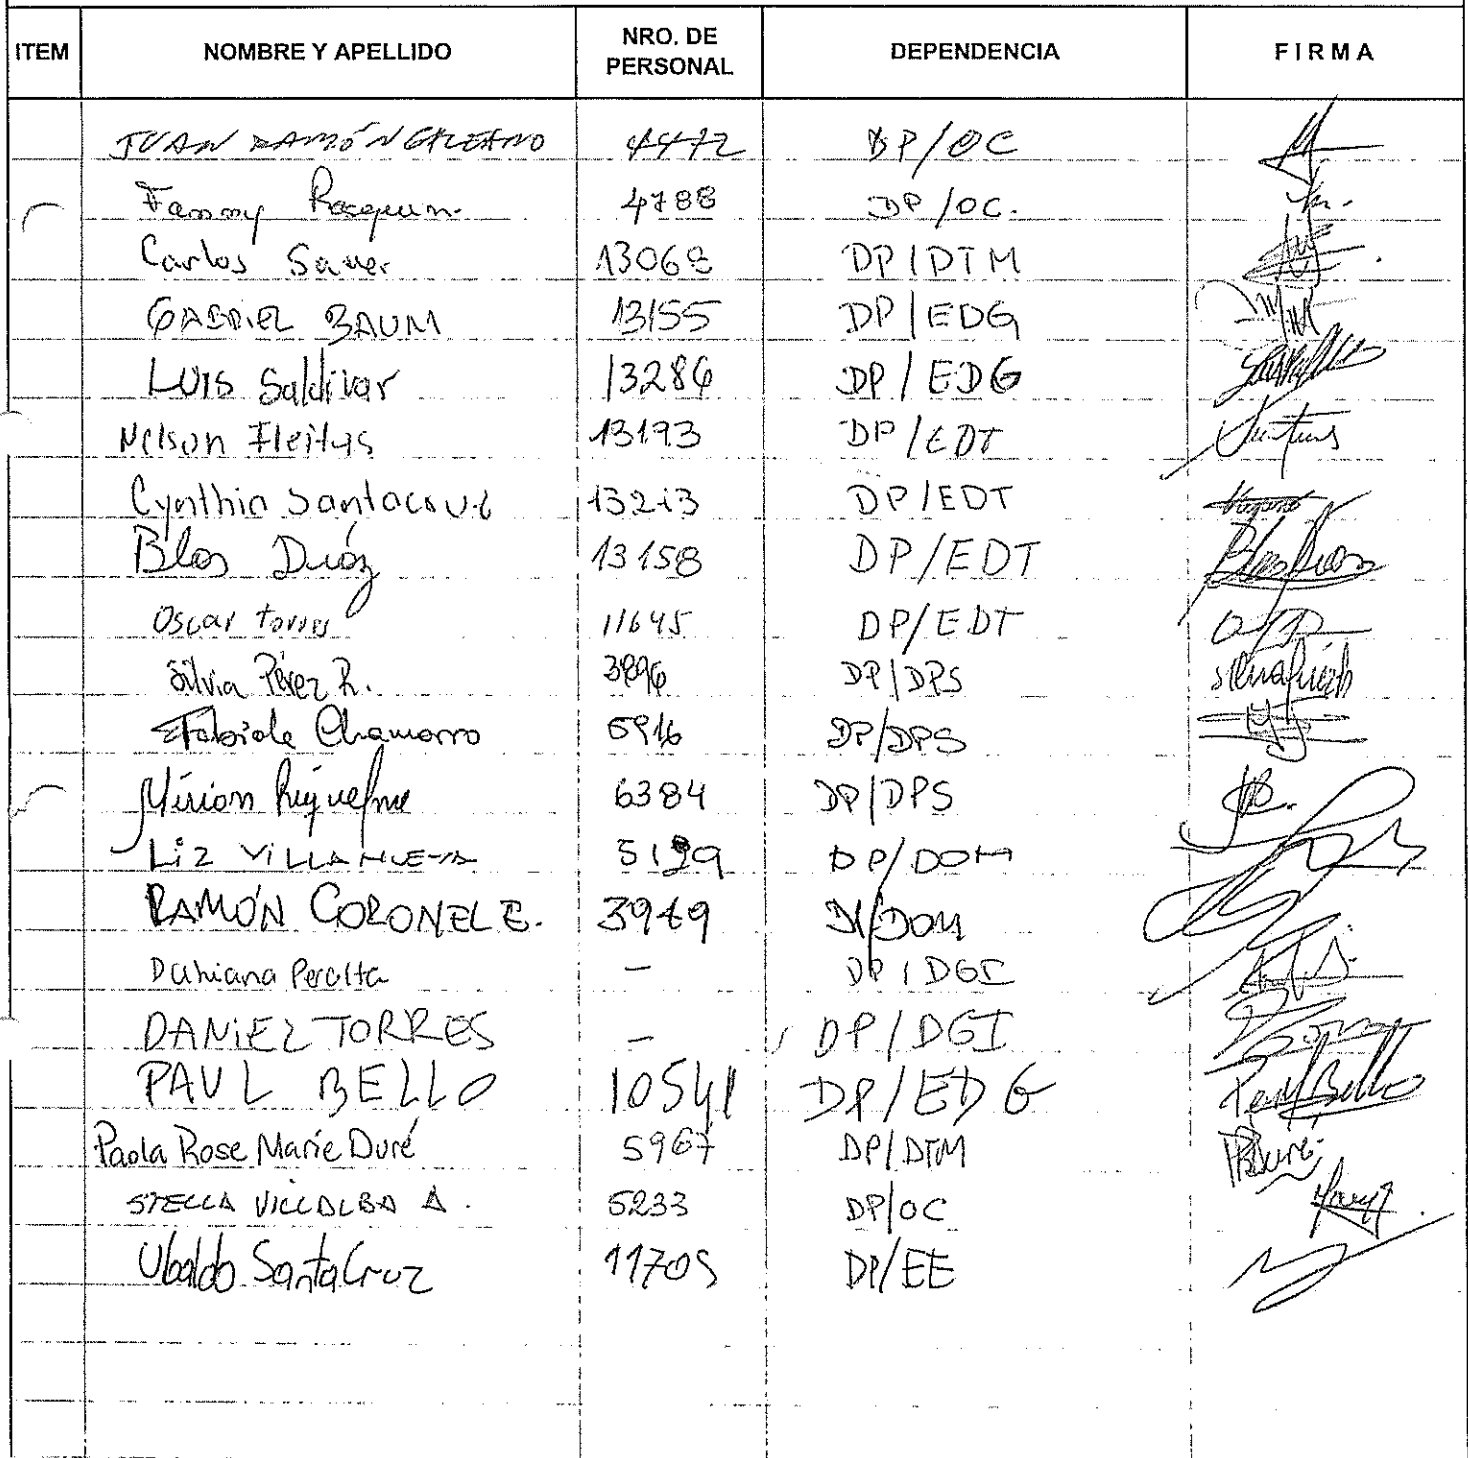 ITEM NOMBRE Y APELLIDO NRO. DE PERSONAL DEPENDENCIA FIRMA
JUAN RAMÓN GALEANO 4472 DP/OC
Fanny 4788 DP/OC.
Carlos Sauer 13068 DP/DTM
GABRIEL BAUM 13155 DP/EDG
LUIS Saldivar 13286 DP/EDG
Nelson Fleitas 13193 DP/EDT
Cynthia Santacruz 13213 DP/EDT
Blas Díaz 13158 DP/EDT Blas Díaz
Oscar Torres 11645 DP/EDT
Silvia Pérez R. 3896 DP/DPS
Fabiola Chamorro 5916 DP/DPS
Mirian Riquelme 6384 DP/DPS
Liz VILLANUEVA 5129 DP/DOM
RAMÓN CORONEL E. 3949 DP/DOM
Dahiana Peralta — DP/DGI
DANIEL TORRES — DP/DGI
PAUL BELLO 10541 DP/EDG Paul Bello
Paola Rose Marie Duré 5967 DP/DTM PDuré
STELLA VILLALBA A. 5233 DP/OC
Ubaldo SantaCruz 11705 DP/EE